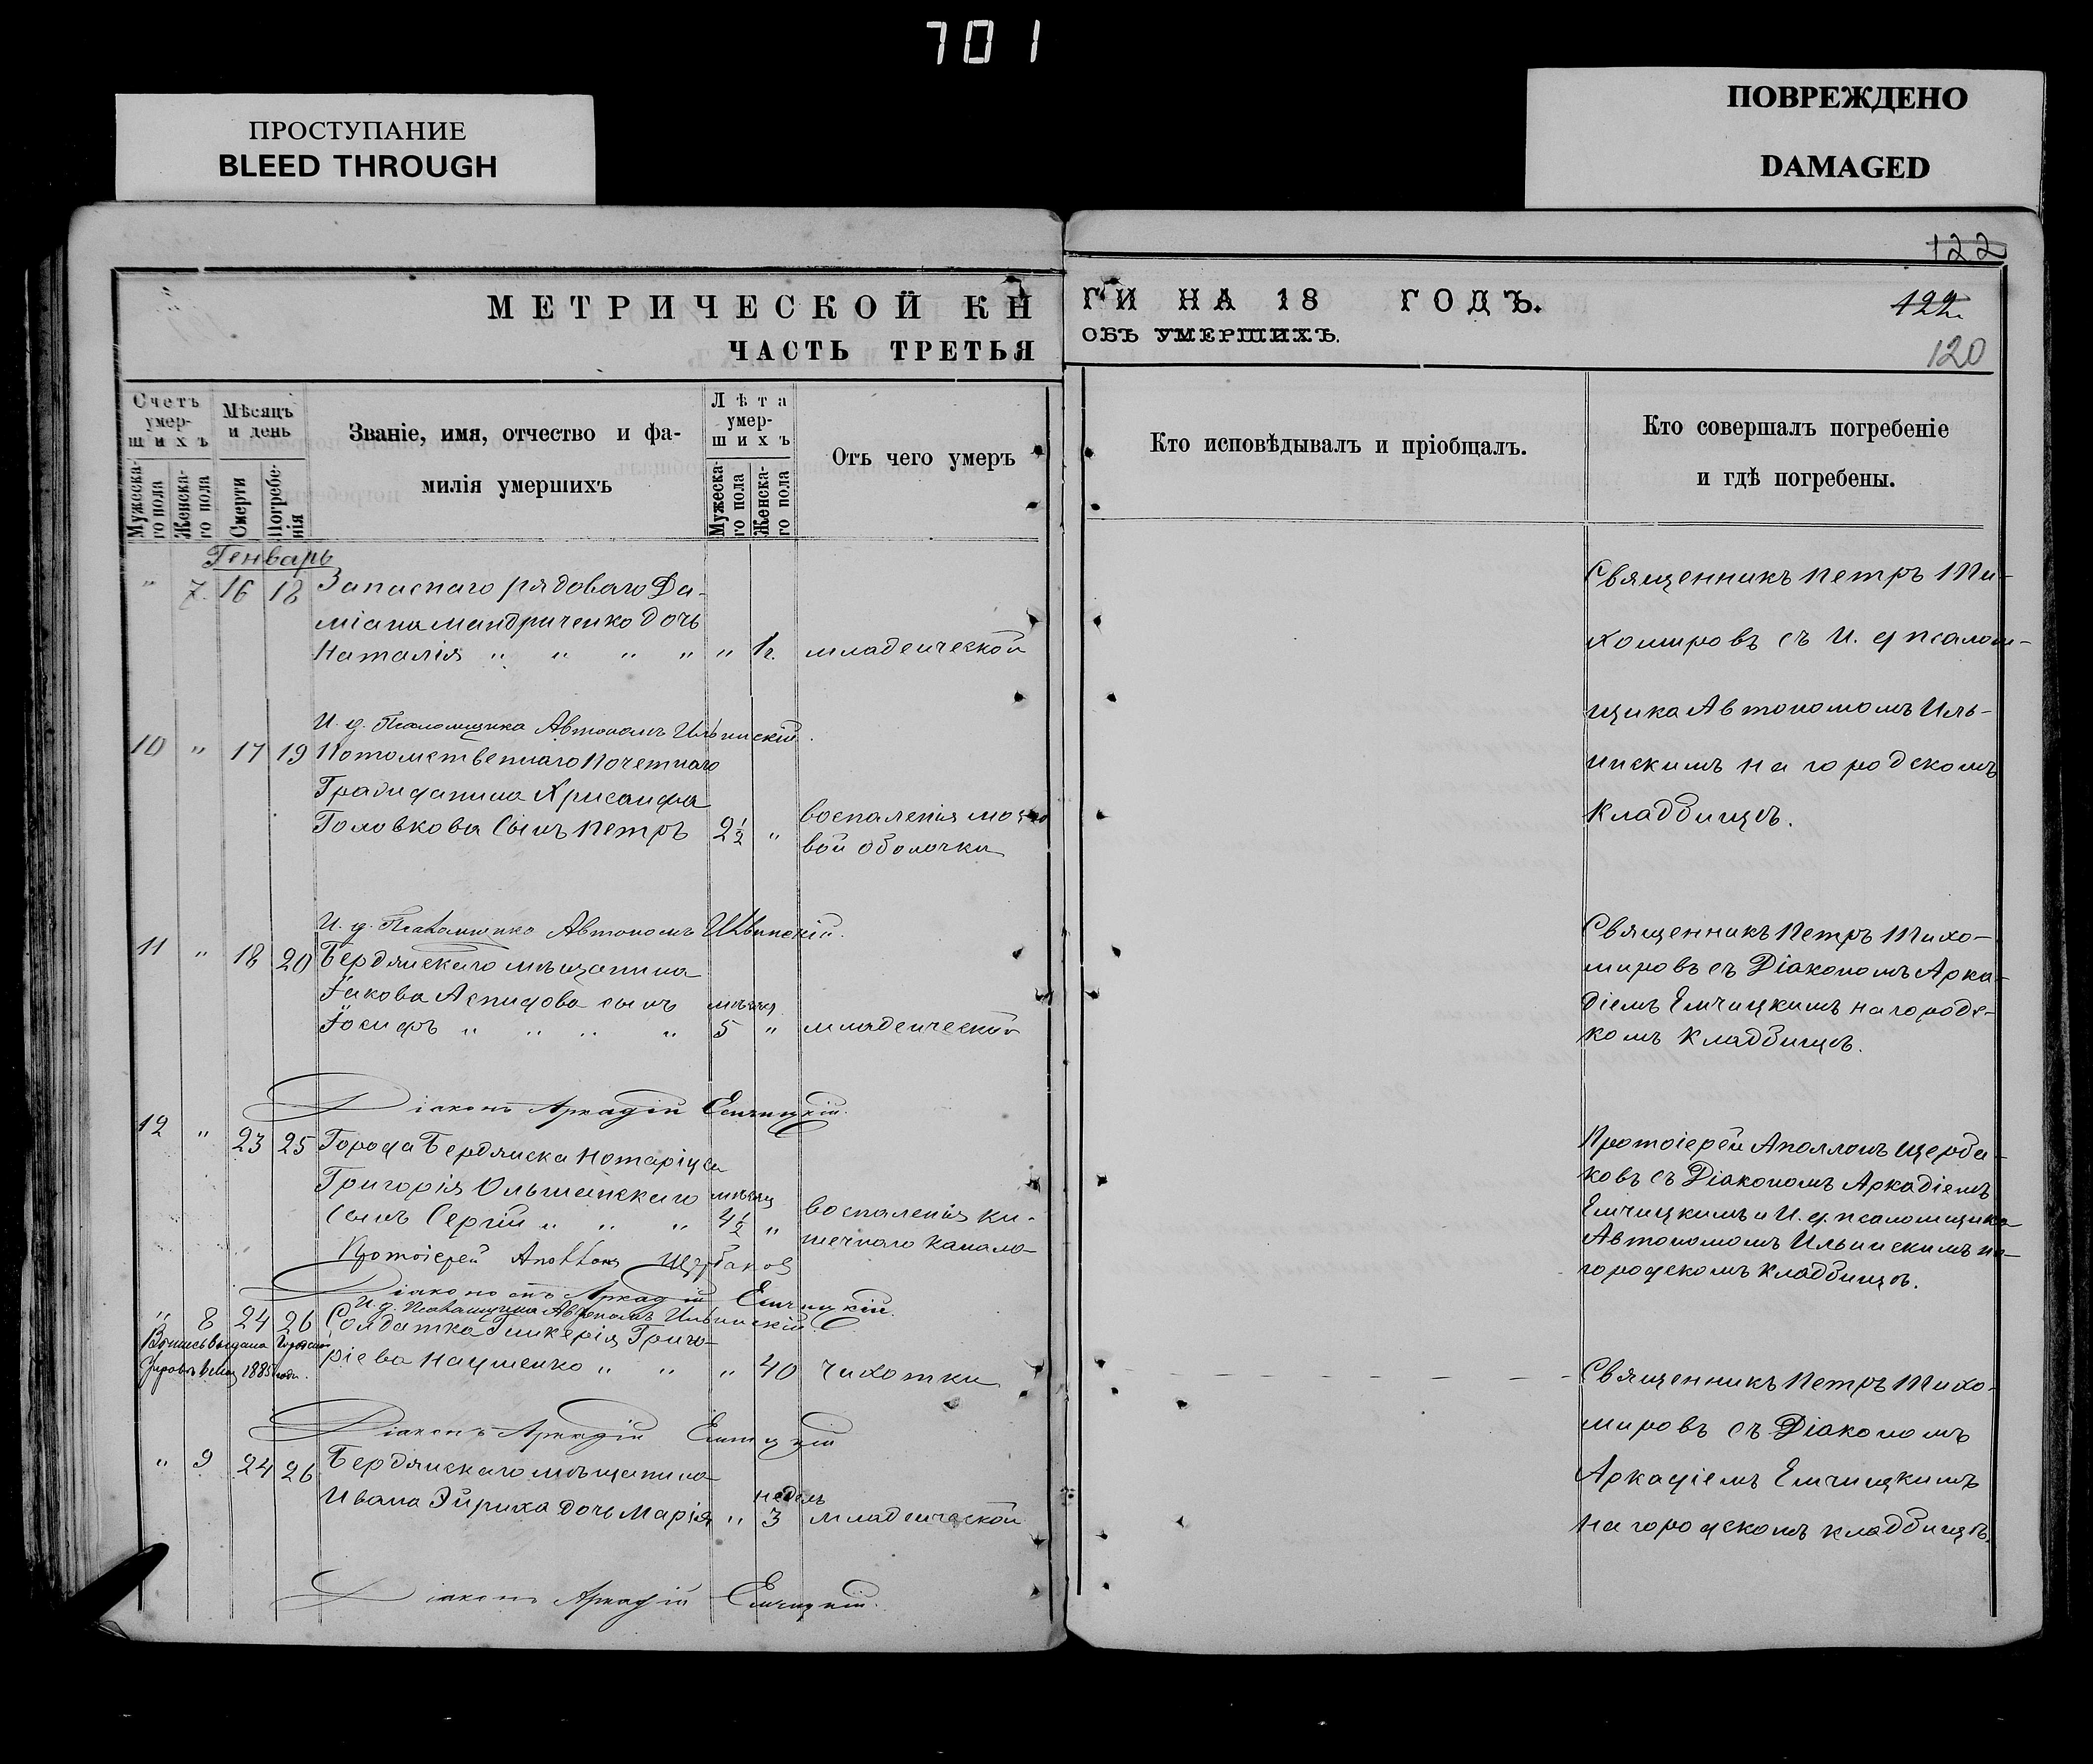 701
ПРОСТУПАНИЕ
BLEED THROUGH
ПОВРЕЖДЕНО
DAMAGED
122
122
120
МЕТРИЧЕСКОЙ КН
ГИ НА 18 ГОДЪ.
ЧАСТЬ ТРЕТЬЯ
ОБЪ УМЕРШИХЪ.
Счетъ умер-шихъ
Мужеска-го пола
Женска-го пола
Мѣсяцъ и день
Смерти
Погребе-нія
Званіе, имя, отчество и фа-
милія умершихъ
Лѣта умер-шихъ
Мужеска-го пола
Женска-го пола
Отъ чего умеръ
Кто исповѣдывалъ и пріобщалъ.
Кто совершалъ погребеніе
и гдѣ погребены.
Генварь
" 7. 16 18 Запаснаго рядоваго Да-
міана Мандриченко дочь
Наталія " " " " " 1г. младенческой
Священникъ Петръ Ти-
хомировъ съ И. д псалом-
щика Автономомъ Иль-
инскимъ на городскомъ
Кладбищѣ.
И. д. Псаломщика Автономъ Ильинскій.
10 " 17 19 Потомственнаго Почетнаго
Гражданина Хрисанфа
Головкова Сынъ Петръ 2½ "
воспаленія мозго
вой оболочки
И. д. Псаломщика Автономъ Ильинскій.
11 " 18 20 Бердянскаго мѣщанина
Іакова Аспидова сынъ мѣсяц
Іосифъ " " " " 5 " младенческой
Священникъ Петръ Тихо-
мировъ съ Діакономъ Арка-
діемъ Емчицкимъ на городс-
комъ Кладбищѣ.
Діаконъ Аркадій Емчицкій.
12 " 23 25 Города Бердянска Нотаріуса
Григорія Ольшанскаго мѣсяц
сынъ Сергій " " " 4½ "
воспаленія ки-
шечнаго канала
Протоіерей Аполлонъ Щерба-
ковъ съ Діакономъ Аркадіемъ
Емчицкимъ и И. д. псаломщика
Автономомъ Ильинскимъ на
городскомъ Кладбищѣ.
Протоіерей Аполлонъ Щербаковъ
Діаконъ Аркадій Емчицкій.
И. д. Псаломщика Автономъ Ильинскій.
" 8 24 26 Солдатка Гликерія Григо-
ріева Наушенко " " " 40 чихотки
1885 года.
Священникъ Петръ Тихо-
мировъ съ Діакономъ
Аркадіемъ Емчицкимъ
на городскомъ кладбищѣ.
Діаконъ Аркадій Емчицкій
" 9 24 26 Бердянскаго мѣщанина
Ивана Эйриха дочь Марія " недѣль 3 младенческой
Діаконъ Аркадій Емчицкій.